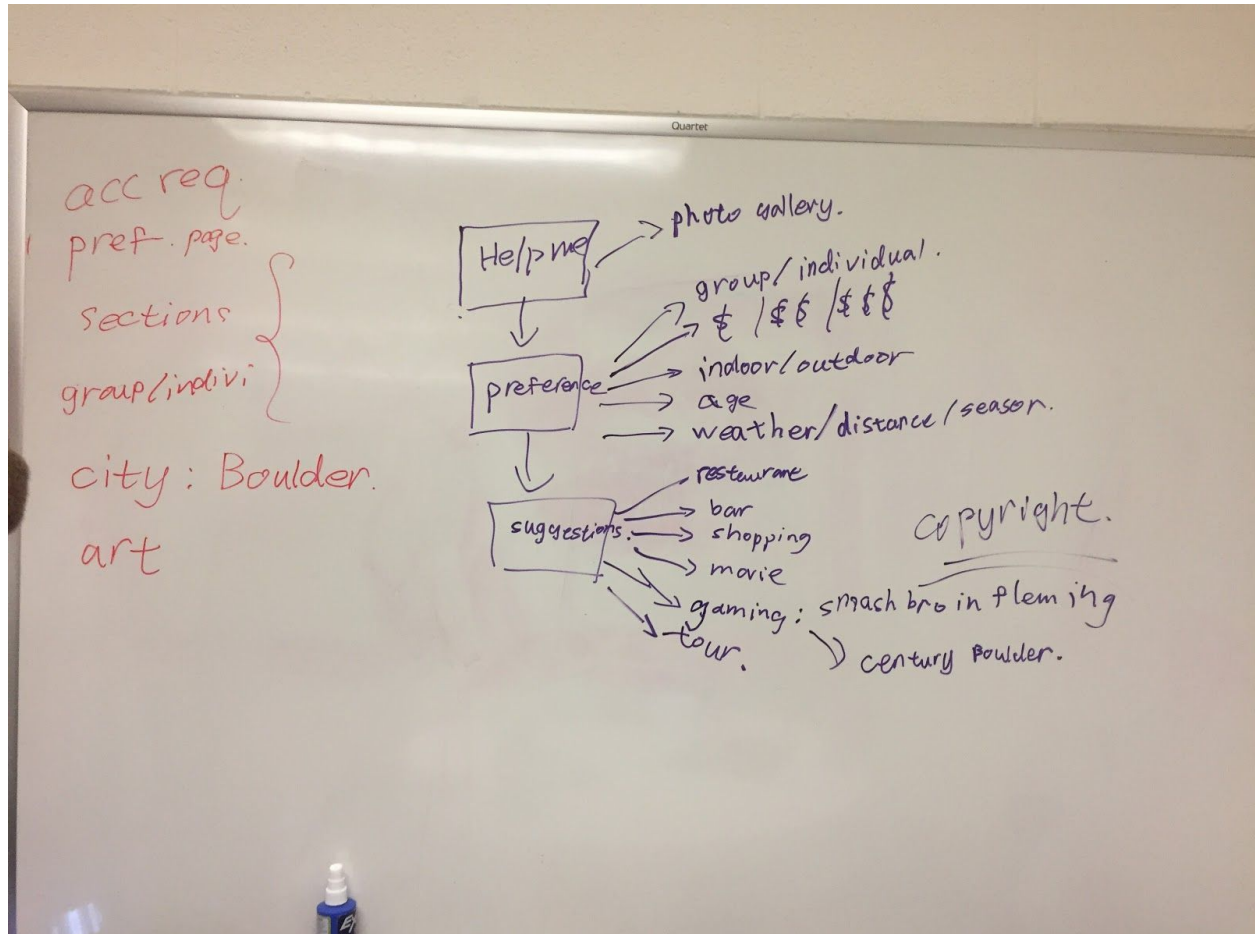 Quartet
acc req.
pref. page.
sections
group/indivi
city: Boulder.
art
Help me
photo gallery.
preference
group/individual.
$ / $$ / $$$
indoor/outdoor
age
weather/distance/season.
suggestions.
restaurant
bar
shopping
movie
gaming: smash bro in fleming
century Boulder.
tour.
copyright.
EX